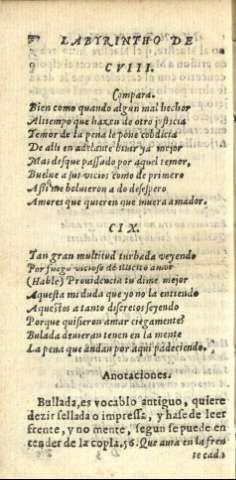 LABYRINTHO DE
CVIII.
Compara.
Bien como quando algun mal hechor
Al tiempo que hazen de otro justicia
Temor de la pena le pone cobdicia
De alli en adelante biuir ya mejor
Mas desque passado por aquel temor,
Buelue a sus vicios como de primero
Assi me boluieron a do desespero
Amores que quieren que muera amador.
CIX.
Tan gran multitud turbada veyendo
Por fuego vicioso de illicito amor
(Hable) Prouidencia tu dime mejor
Aquesta mi duda que yo no la entiendo
Aquestos a tanto discretos seyendo
Porque quisieron amar ciegamente?
Bulada deuieran tener en la mente
La pena que andan por aqui padeciendo.
Anotaciones.
Bullada, es vocablo antiguo, quiere
dezir sellada o impressa, y hase de leer
frente, y no mente, segun se puede en
tender de la copla. 56. Que aura en la fren
te cad.